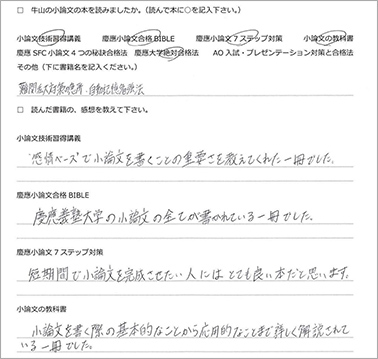 □ 牛山の小論文の本を読みましたか。（読んで本に○を記入下さい。）
小論文技術習得講義 慶應小論文合格 BIBLE 慶應小論文 7 ステップ対策 小論文の教科書
慶應 SFC 小論文 4 つの秘訣合格法 慶應大学絶対合格法 AO 入試・プレゼンテーション対策と合格法
その他（下に書籍名を記入ください。）
難関大対策
□ 読んだ書籍の、感想を教えて下さい。
小論文技術習得講義
"感情ベース"で小論文を書くことの重要さを教えてくれた一冊でした。
慶應小論文合格 BIBLE
慶應義塾大学の小論文の全てが書かれている一冊でした。
慶應小論文 7 ステップ対策
短期間で小論文を完成させたい人にはとても良い本だと思います。
小論文の教科書
小論文を書く際の基本的なことから応用的なことまで詳しく解説されて
いる一冊でした。